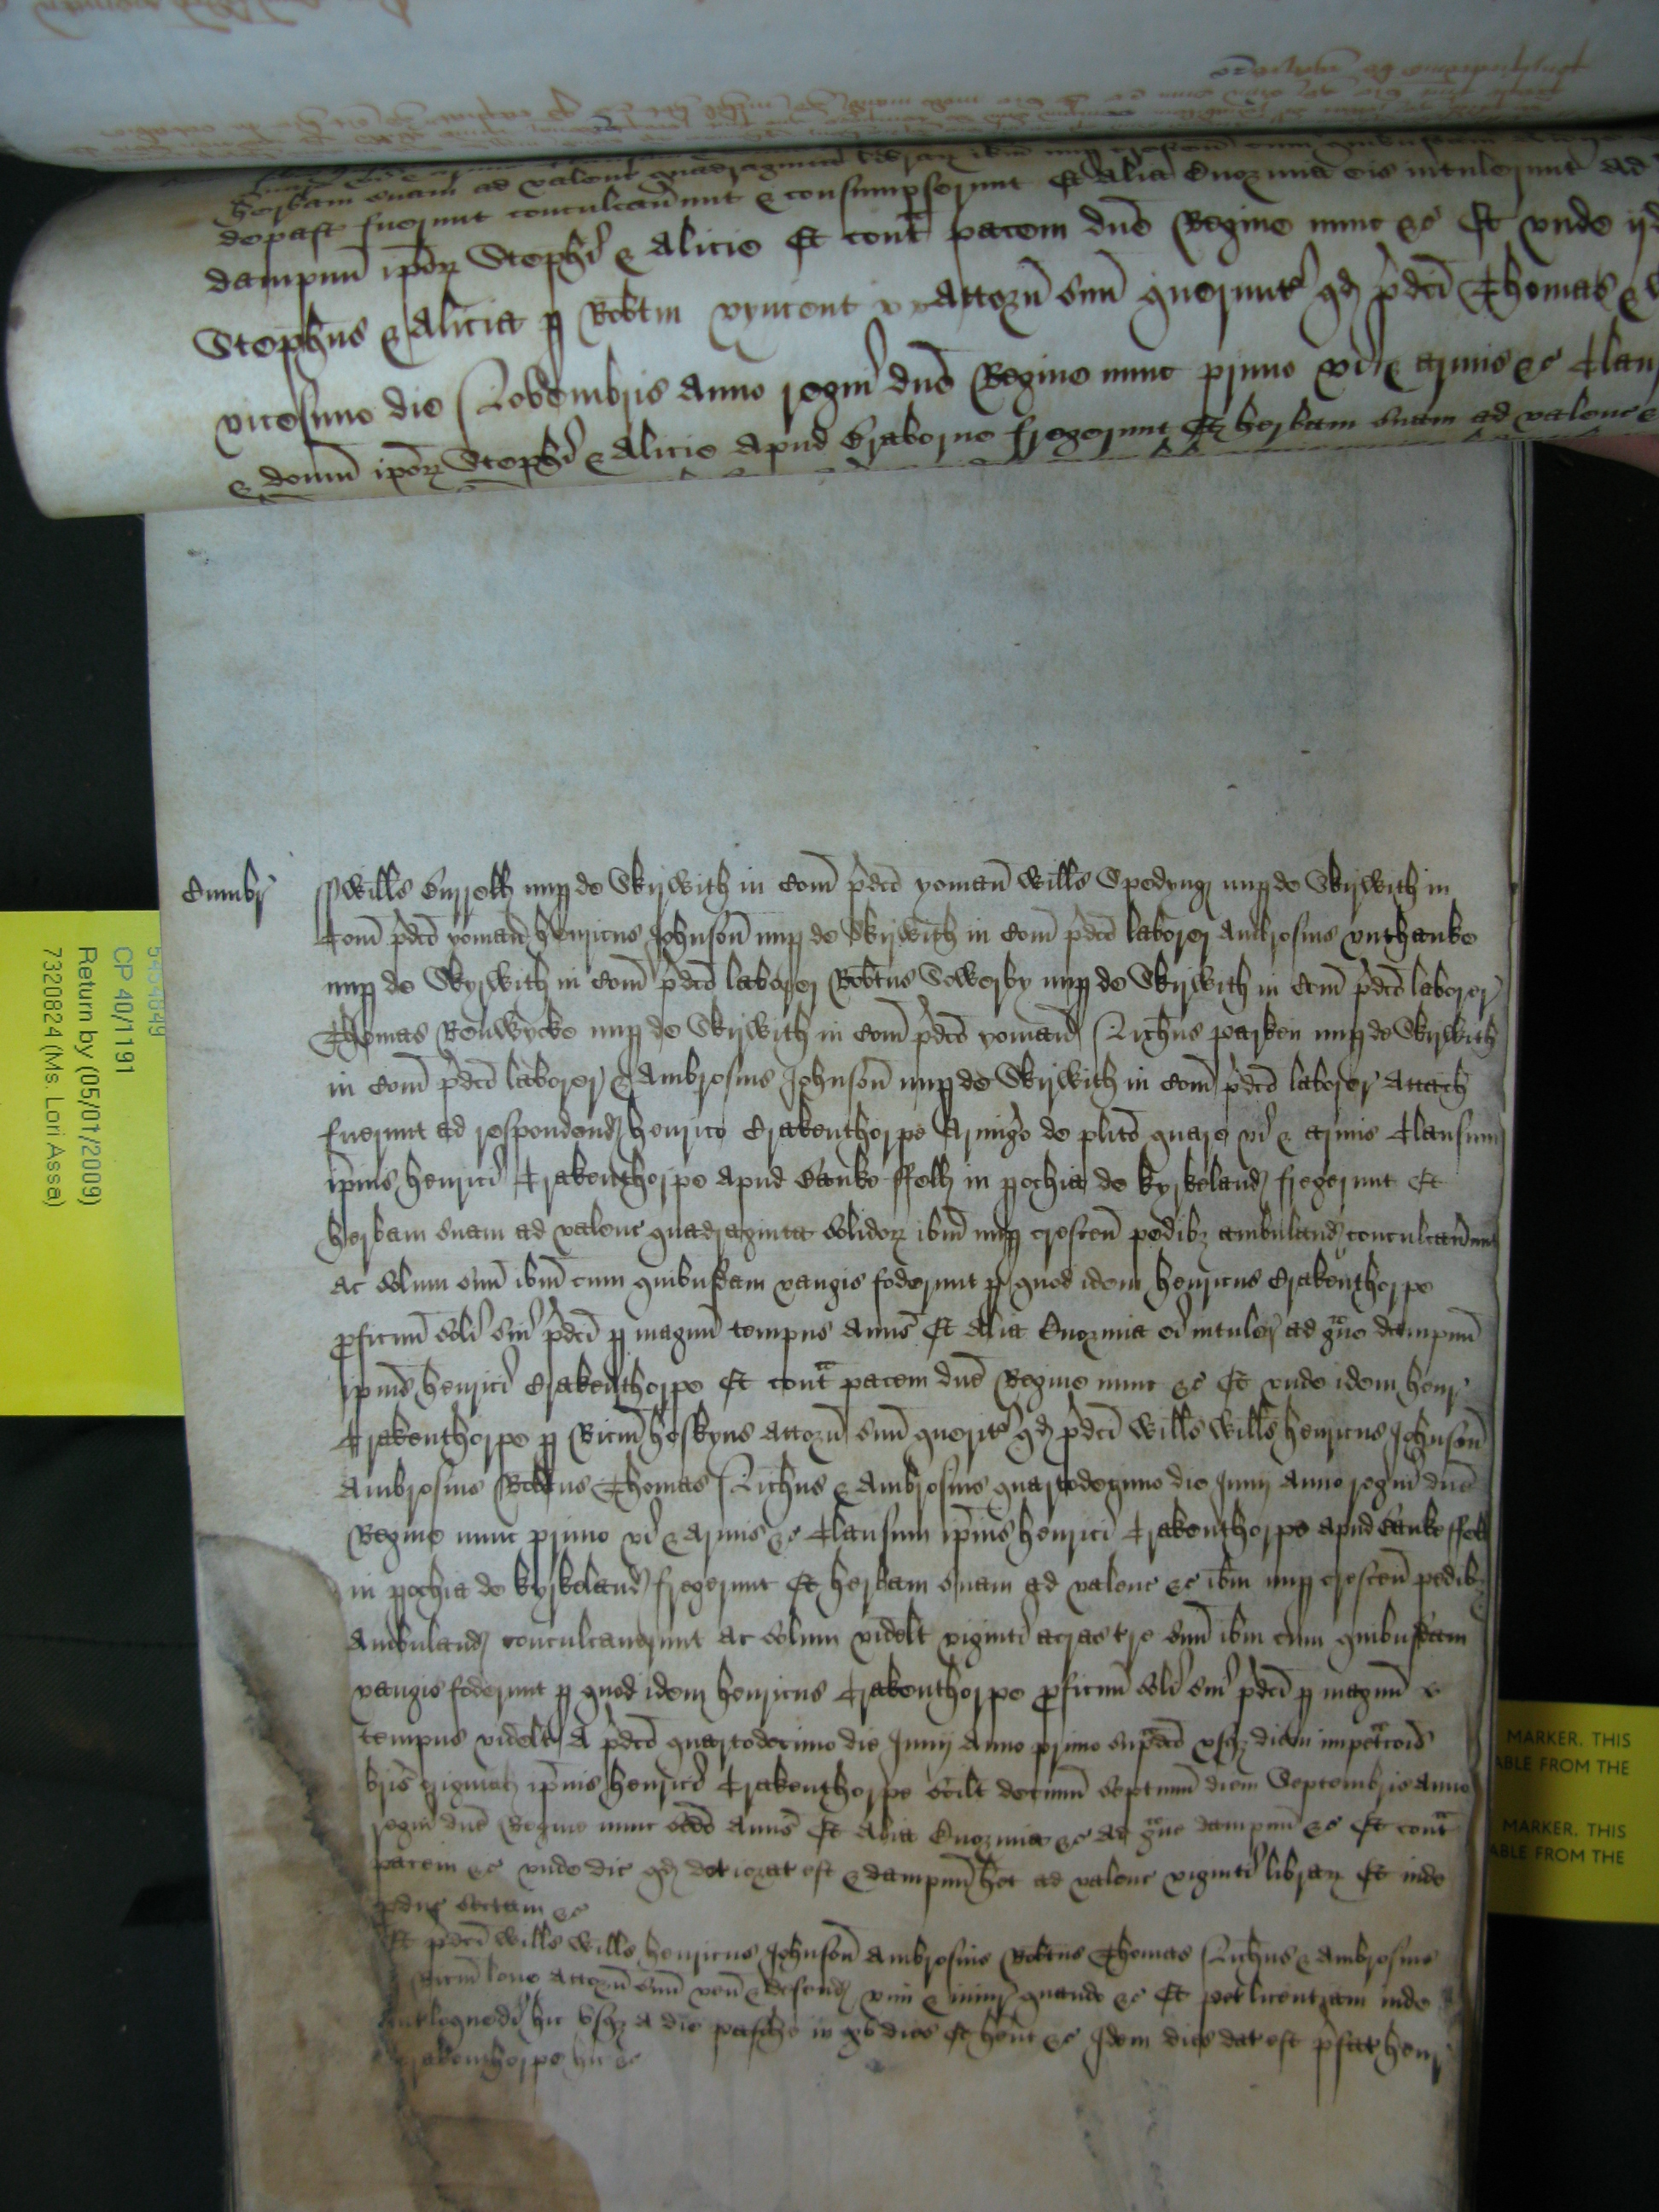 herbam suam ad valenc quadraginta librar ibm nup crescen cum quibusdam
depast fuerunt conculcaverunt & consumpserunt Et Alia Enormia eis intulerunt ad
dampnū ipōr Stephi & Alicie Et cont pacem dnē Regine nunc &c Et vnde ijd
Stephus & Alicia p Robtm vyncent Attorn suū queruntr qd pdci Thomas &
vicesimo die Novembris Anno regni dnē Regine nunc primo vi & armis &c Clau
& domū ipōr Stephi & Alicie Apud Braborne fregerunt Et herbam suam ad valenc
Cumbr
Willms Burrell nup de Skyrwith in Com pdco yoman Willms Spedyng nup de Skyrwith in
Com pdco yoman henricus Johnson nup de Skyrwith in Com pdco laborer Ambrosius vnthanke
nup de Skyrwith in Com pdco laborer Robtus Sowerby nup de Skyrwith in Com pdco laborer
Thomas Renwycke nup de Skyrwith in Com pdco yoman Nichus parken nup de Skyrwith
in Com pdco laborer & Ambrosius Johnson nup de Skyrwith in Com pdco laborer Attach
fuerunt ad respondend henrico Crakenthorpe Armigo de plito quare vi & armis Clausum
ipius henrici Crakenthorpe Apud Banke ffell in pochia de kyrkeland fregerunt Et
herbam suam ad valenc quadraginta solidor ibm nup crescen pedibz ambuland conculcaverunt
ac solum suū ibm cum quibusdam vangis foderunt p quod idem henricus Crakenthorpe
pficuū soli sui pdci p magnū tempus Amis Et Alia Enormia ei intuler ad gve dampnū
ipius henrici Crakenthorpe Et cont pacem dnē Regine nunc &c Et vnde idem henr
Crakenthorpe p Ricm hoskyns Attorn suū queritr qd pdci Willms Willms henricus Johnson
Ambrosius Robtus Thomas Nichus & Ambrosius quartodecimo die Junij Anno regni dnē
Regine nunc primo vi & armis &c Clausum ipius henrici Crakenthorpe apud Banke ffell
in pochia de kyrkeland fregerunt Et herbam suam ad valenc &c ibm nup crescen pedibz
Ambuland conculcaverunt ac solum videlt viginti acras tre suū ibm cum quibusdam
vangis foderunt p quod idem henricus Crakenthorpe pficuū soli sui pdci p magnū
tempus videlt A pdco quartodecimo die Junij Anno primo supdco vsqz diem impetracois
bris origināl ipius henrici Crakenthorpe scilt decimū septimū diem Septembris Anno
regni dnē Regine nunc scdo Amis Et Alia Enormia &c ad gve dampnū &c Et cont
pacem &c vnde dic qd deteriorat est & dampnū het ad valenc viginti librar Et inde
pduc sectam &c
Et pdci Willms Willms henricus Johnson Ambrosius Robtus Thomas Nichus & Ambrosius
Ricm lone Attorn suū ven & defend vim & iniur quando &c Et pet licentiam inde
intloquedi hic vsqz A die pasche in xv dies Et hent &c Idem dies dat est pfat henr
Crakenthorpe hic &c
CP 40/1191
Return by (05/01/2009)
7320824 (Ms. Lori Assa)
MARKER. THIS
ABLE FROM THE
MARKER. THIS
ABLE FROM THE